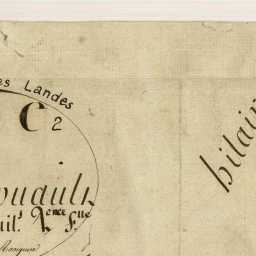 es Landes
C 2
ouault
uil. 1ere Flle
hilair